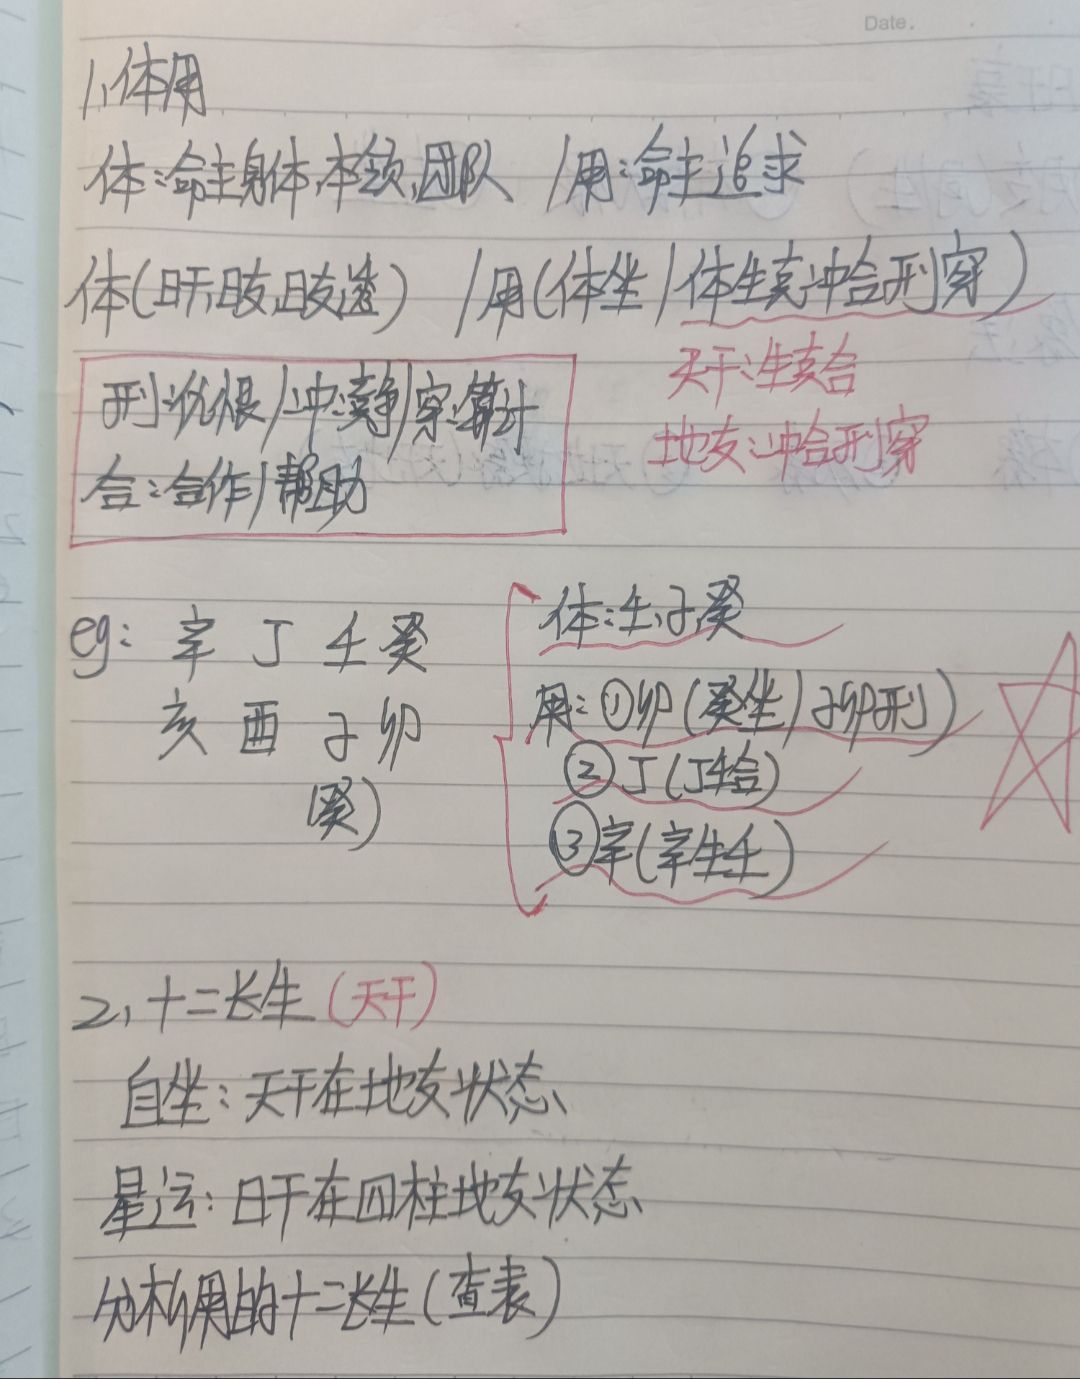 Date.
1、体用
体:命主身体,本领,团队 /用:命主追求
体(日干,日支,日支透) /用(体坐/体生克冲合刑穿)
天干:生克合
地支:冲合刑穿
刑:仇恨/冲:竞争/穿:算计
合:合作/帮助
eg: 辛 丁 壬 癸
亥 酉 子 卯
(癸)
体:壬,子,癸
用:①卯(癸坐/子卯刑)
②丁(丁壬合)
③辛(辛生壬)
2、十二长生(天干)
自坐:天干在地支状态
星运:日干在四柱地支状态
分析用的十二长生(查表)